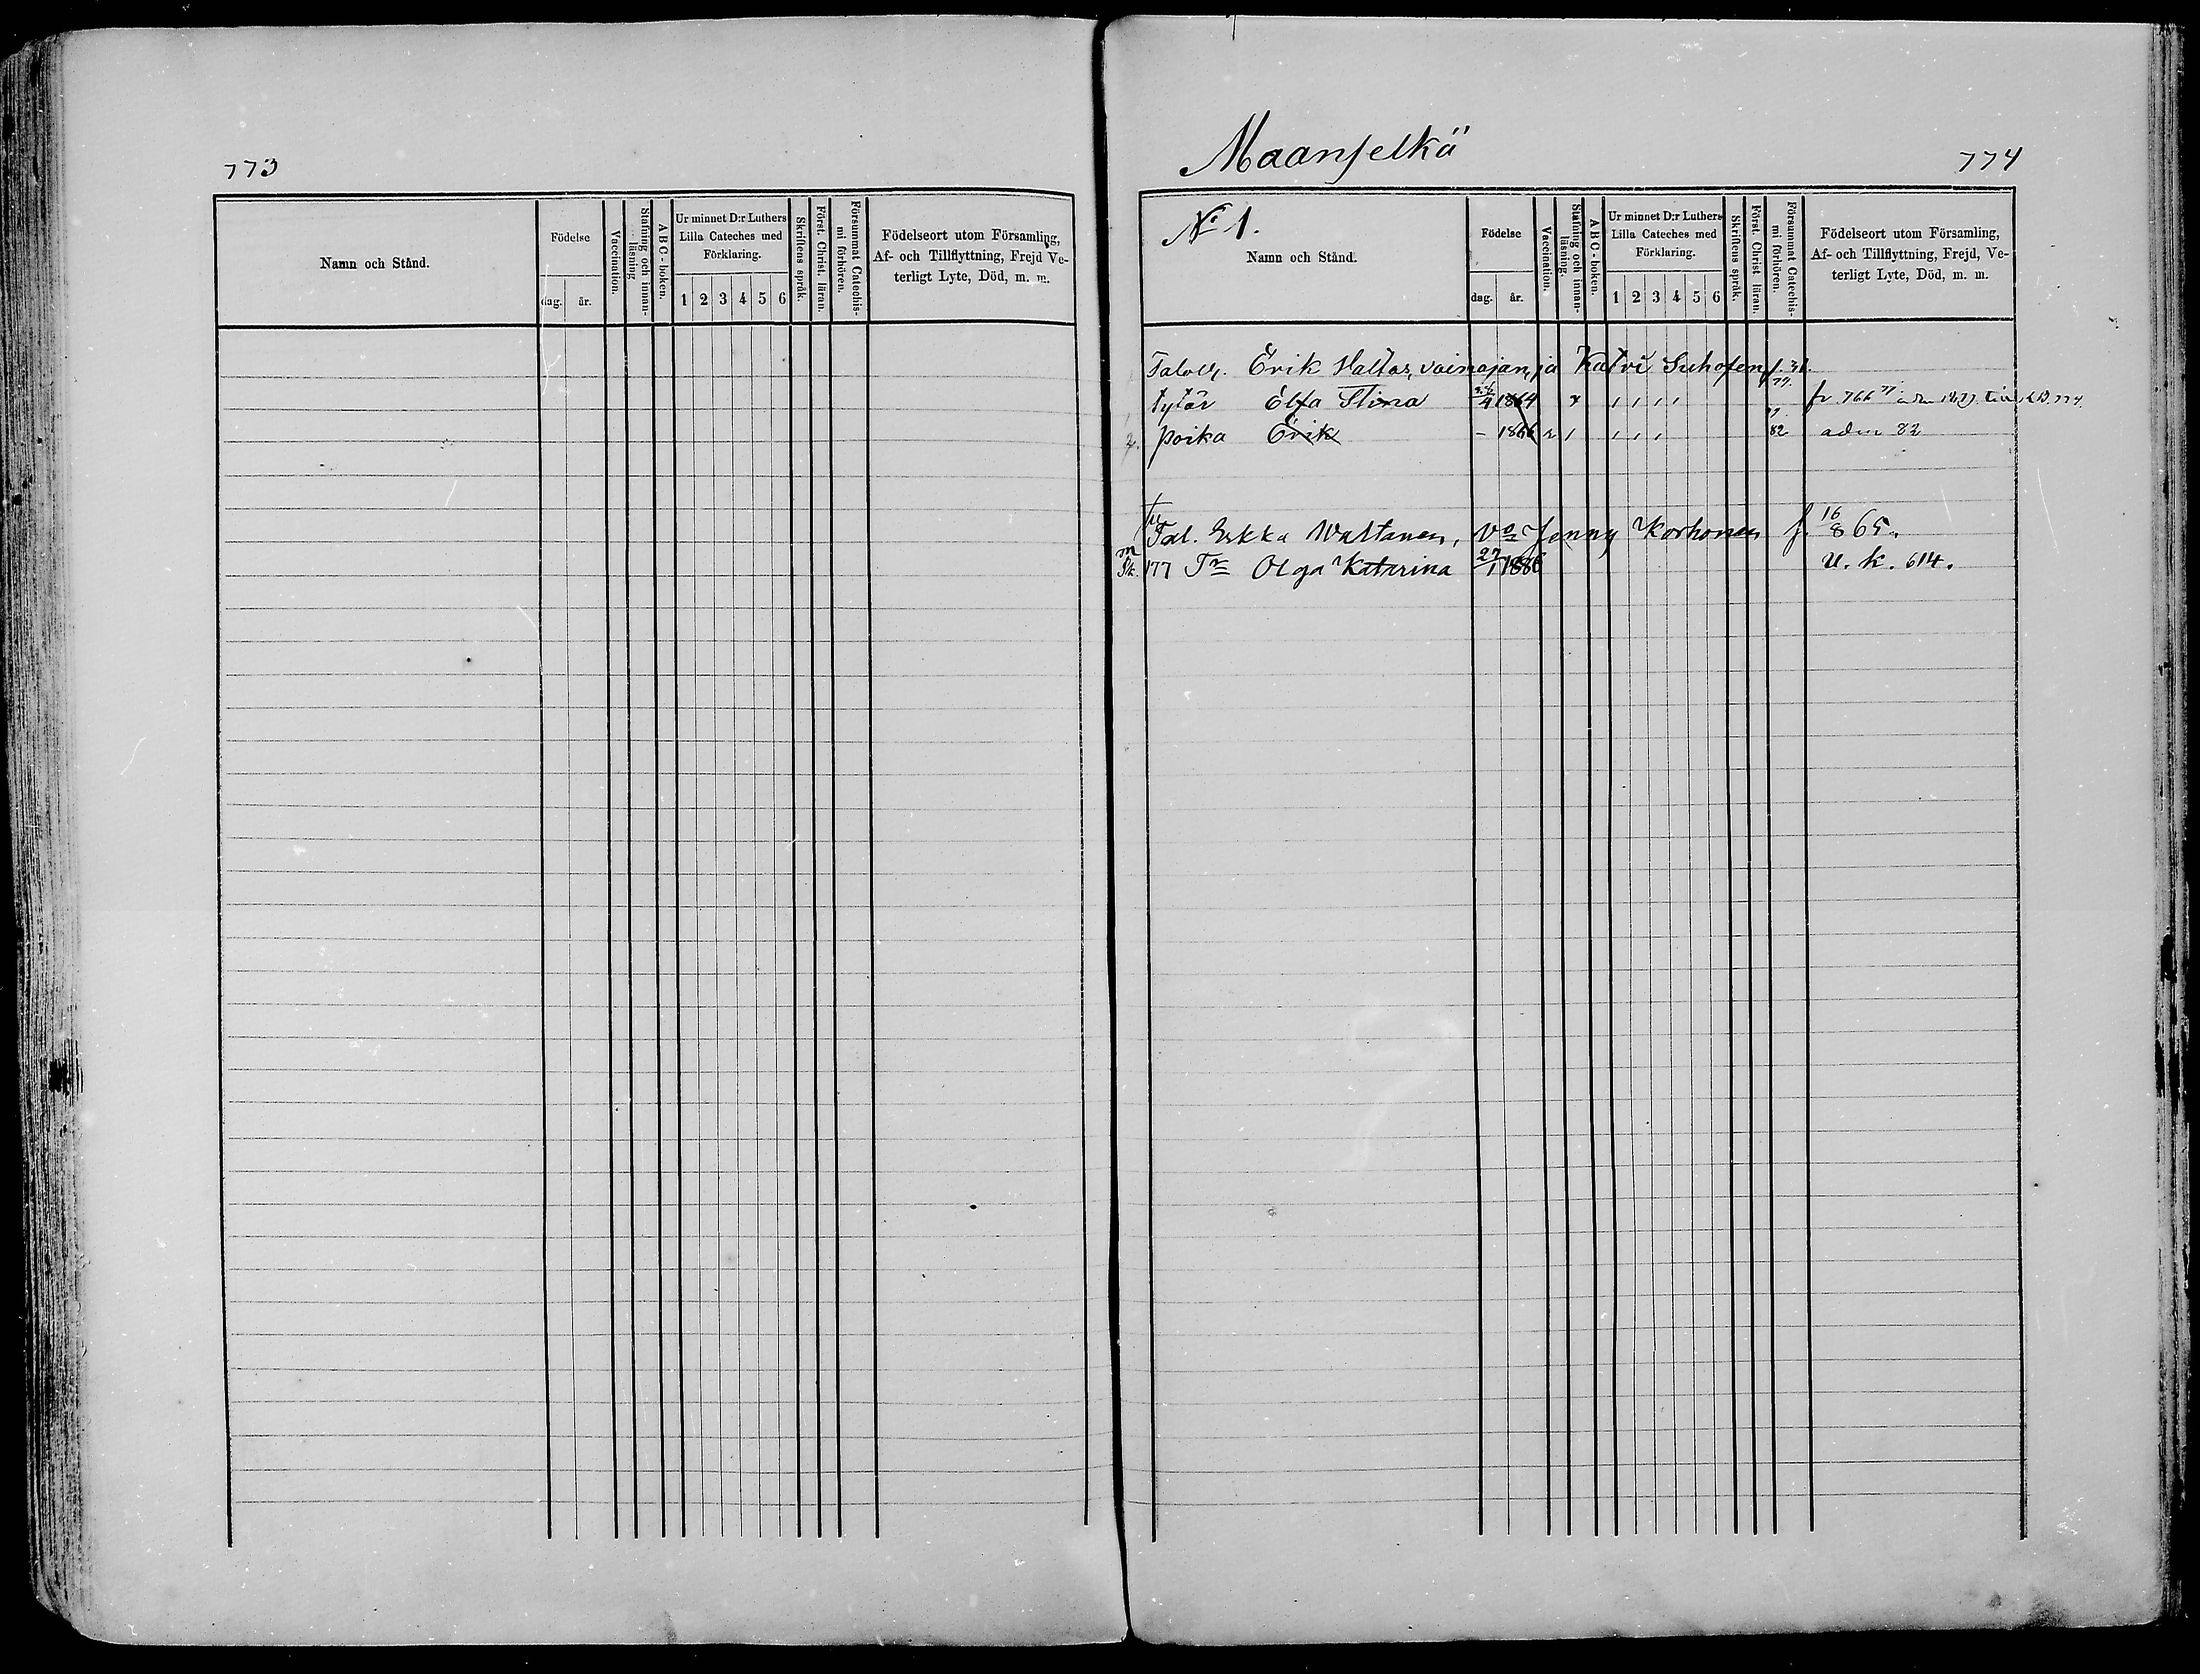 773
Namn och Stånd.
Födelse
dag. år.
Vaccination.
Stafning och innan-
läsning
ABC-boken.
Ur minnet D:r Luthers
Lilla Cateches med
Förklaring.
1 2 3 4 5 6
Skriftens språk.
Först. Christ. läran.
Försummat Catechis-
mi förhören.
Födelseort utom Församling,
Af- och Tillflyttning, Frejd Ve-
terligt Lyte, Död, m. m.
Maanselkä
774
No 1.
Namn och Stånd.
Födelse
dag. år.
Vaccination.
Stafning och innan-
läsning.
ABC-boken.
Ur minnet D:r Luthers
Lilla Cateches med
Förklaring.
1 2 3 4 5 6
Skriftens språk.
Först. Christ läran.
Försummat Catechis-
mi förhören.
Födelseort utom Församling,
Af- och Tillflyttning, Frejd, Ve-
terligt Lyte, Död, m. m.
Erik vaimajan, ja Katri f. 31.
tytär Elsa Stina 1864 fr 766
poika Erik - 1866 82 adm 82
Tal. Erkka Waltanen, Va Jenny Korhonen f. 16/8 65.
177 Tr Olga Katarina 27/1 1886 U. k. 614.